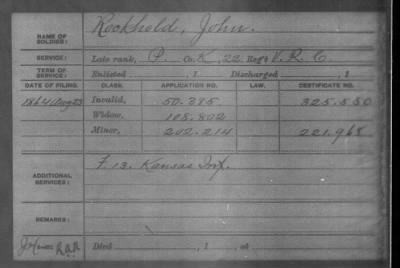 NAME OF SOLDIER: Rockhold, John.
SERVICE: Late rank, P. Co. K, 22 Reg't V. R. C.
TERM OF SERVICE: Enlisted , 1 Discharged , 1
DATE OF FILING. CLASS. APPLICATION NO. LAW. CERTIFICATE NO.
1864 Aug 23 Invalid, 50.385 325.550
Widow, 108.802
Minor, 202.214 221.968
ADDITIONAL SERVICES: F. 13. Kansas Inf.
REMARKS:
Died , 1 , at